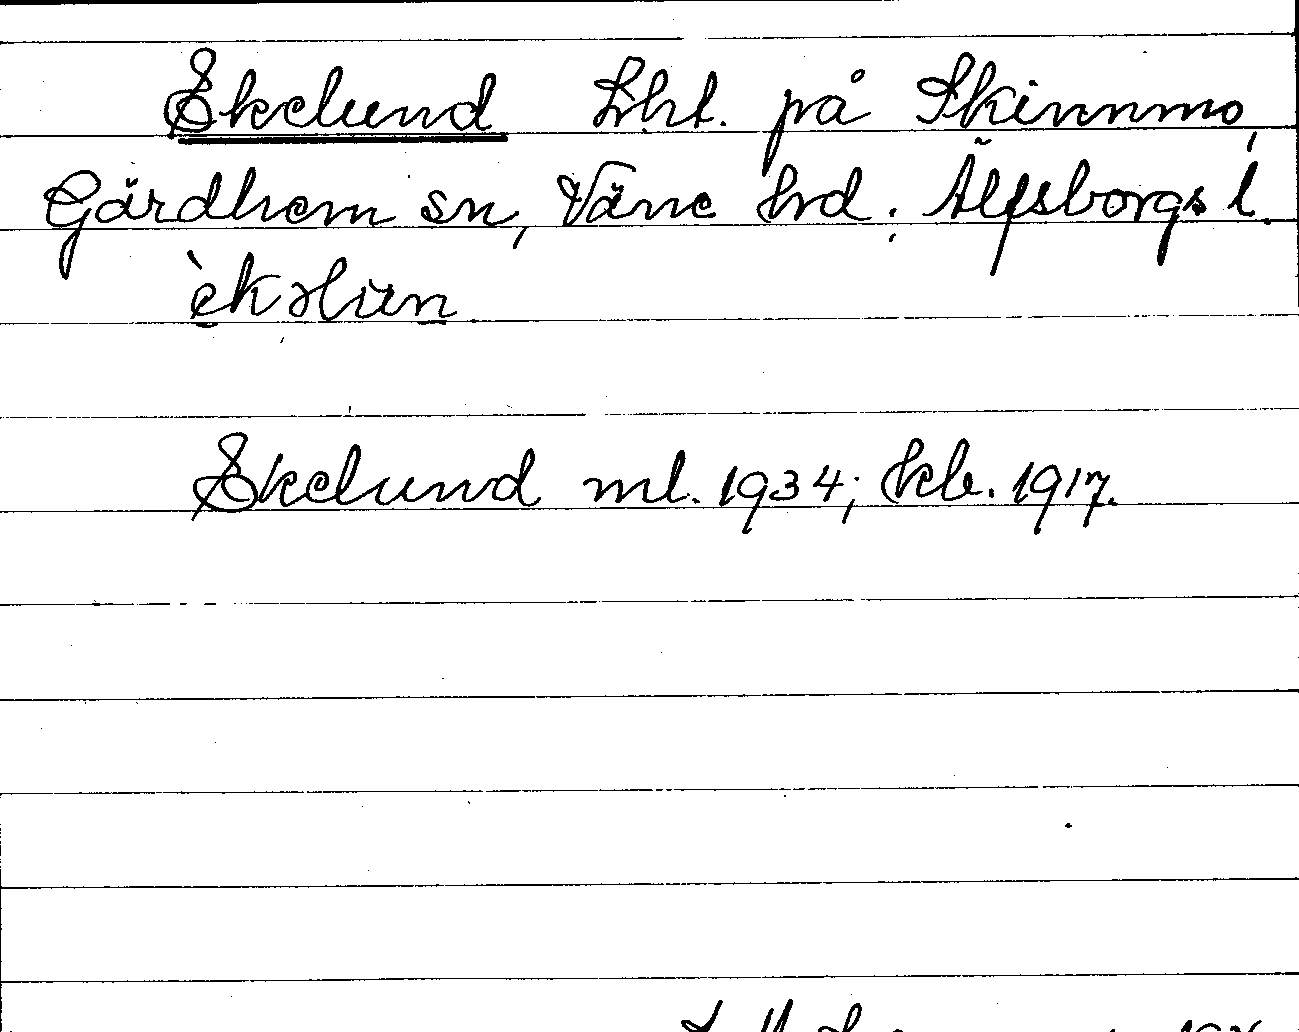 Ekelund Lht. på Skinnmo,
Gärdhem sn, Väne hrd. Älfsborgs l.
èkəlun
Ekelund ml. 1934; kb. 1917.